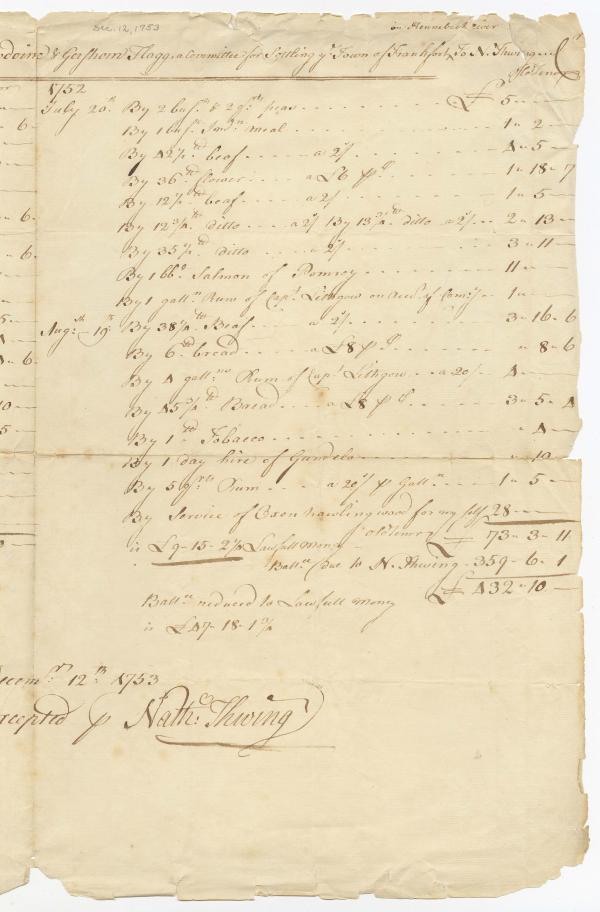 Dec. 12, 1753
on Kennebeck river
& Gershom Flagg a Committee for Settling ye Town of Frankfort To N. Thwing
Old Tenor
1752
July 20th By 2 busls & 2 qrts peas £ 5
6 By 1 busl Indn meal 1 " 2
By 42 ½ lb beaf a 2/ 4 " 5
By 36 lb a £6 p C 1 " 18 " 7
By 12½ lb beaf a 2/ 1 " 5
By 12¾ lb ditto a 2/ By 13¾ lb ditto a 2/ 2 " 13
6 By 35½ lb ditto a 2/ 3 " 11
By 1 bbl Salmon of Pomroy 11 "
By 1 galln Rum of Capt Lithgow on Acct of Comy 1 "
Augst 19th By 38¼ lb Beaf a 2/ 3 " 16 " 6
By 6 lb bread a £8 p C " 8 " 6
6 By 4 gallns Rum of Capt Lithgow a 20/ 4
By 45¾ lb Bread a £8 p C 3 " 5 " 4
By 1 lb Tobacco " 4
By 1 day hire of Gundelo " 10
By 5 qrts Rum a 20/ p Galln 1 " 5
By Service of Oxen hawling wood for my self 28
is £9 - 15 - 2½ Lawfull Money Old Tenor £ 73 - 3 - 11
Ballce due to N. Thwing 359 - 6 - 1
£ 432 - 10
Ballce reduced to Lawfull Money
is £47 - 18 - 1½
Decemr 12th 1753
accepted p Nathl Thwing